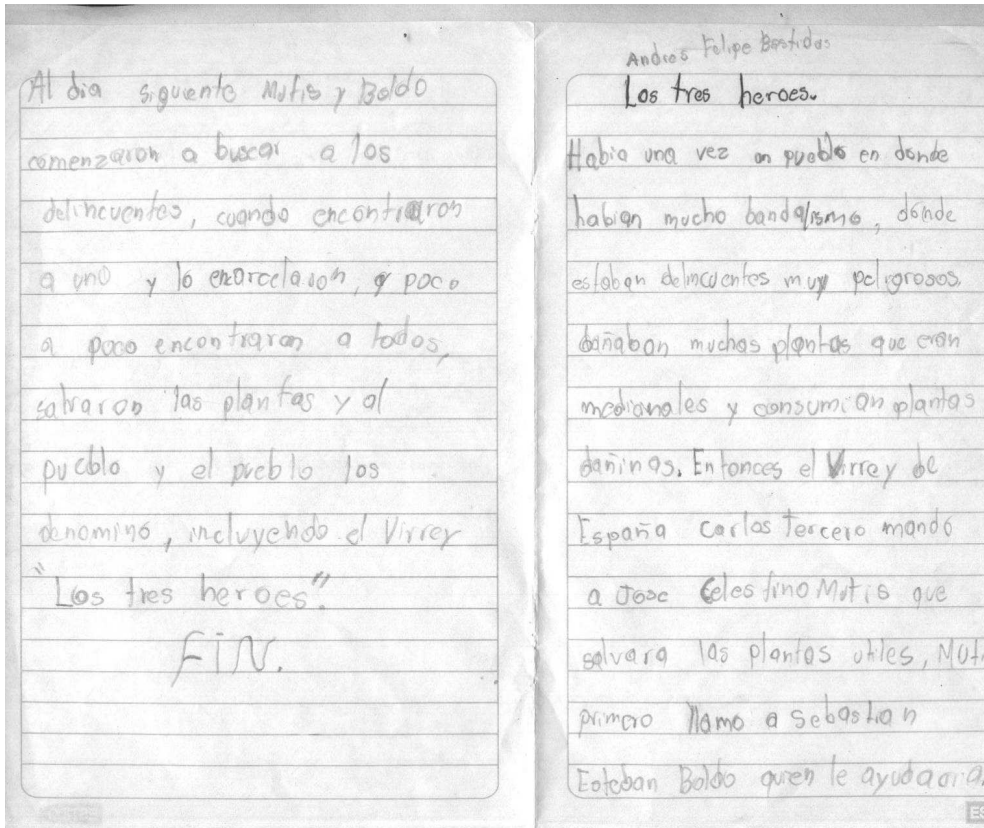 Al dia siguiente Mutis y Boldo
comenzaron a buscar a los
delincuentes, cuando encontraron
a uno y lo encarcelaron, y poco
a poco encontraron a todos,
salvaron las plantas y al
pueblo y el pueblo los
denominó, incluyendo el Virrey
"Los tres heroes".
FIN.
Andres Felipe Bastidas
Los tres heroes.
Habia una vez un pueblo en donde
habian mucho bandalismo, dónde
estaban delincuentes muy peligrosos.
dañaban muchas plantas que eran
medicinales y consumian plantas
dañinas. Entonces el Virrey de
España Carlos Tercero mandó
a Jose Celestino Mutis que
salvara las plantas utiles, Muti
primero llamo a Sebastian
Esteban Boldo quien le ayudaria.
ES